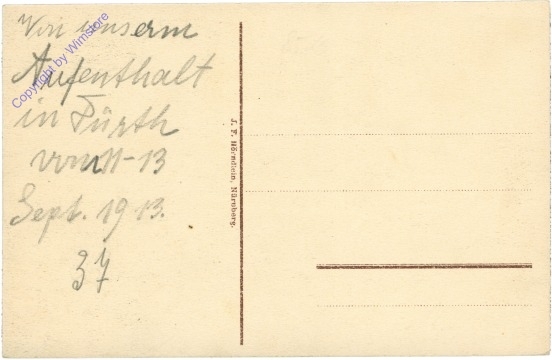 Von unserm
Aufenthalt
in Fürth
vom 11-13
Sept. 1913.
37
J. F. Hörndlein, Nürnberg.
Copyright by Wimstore